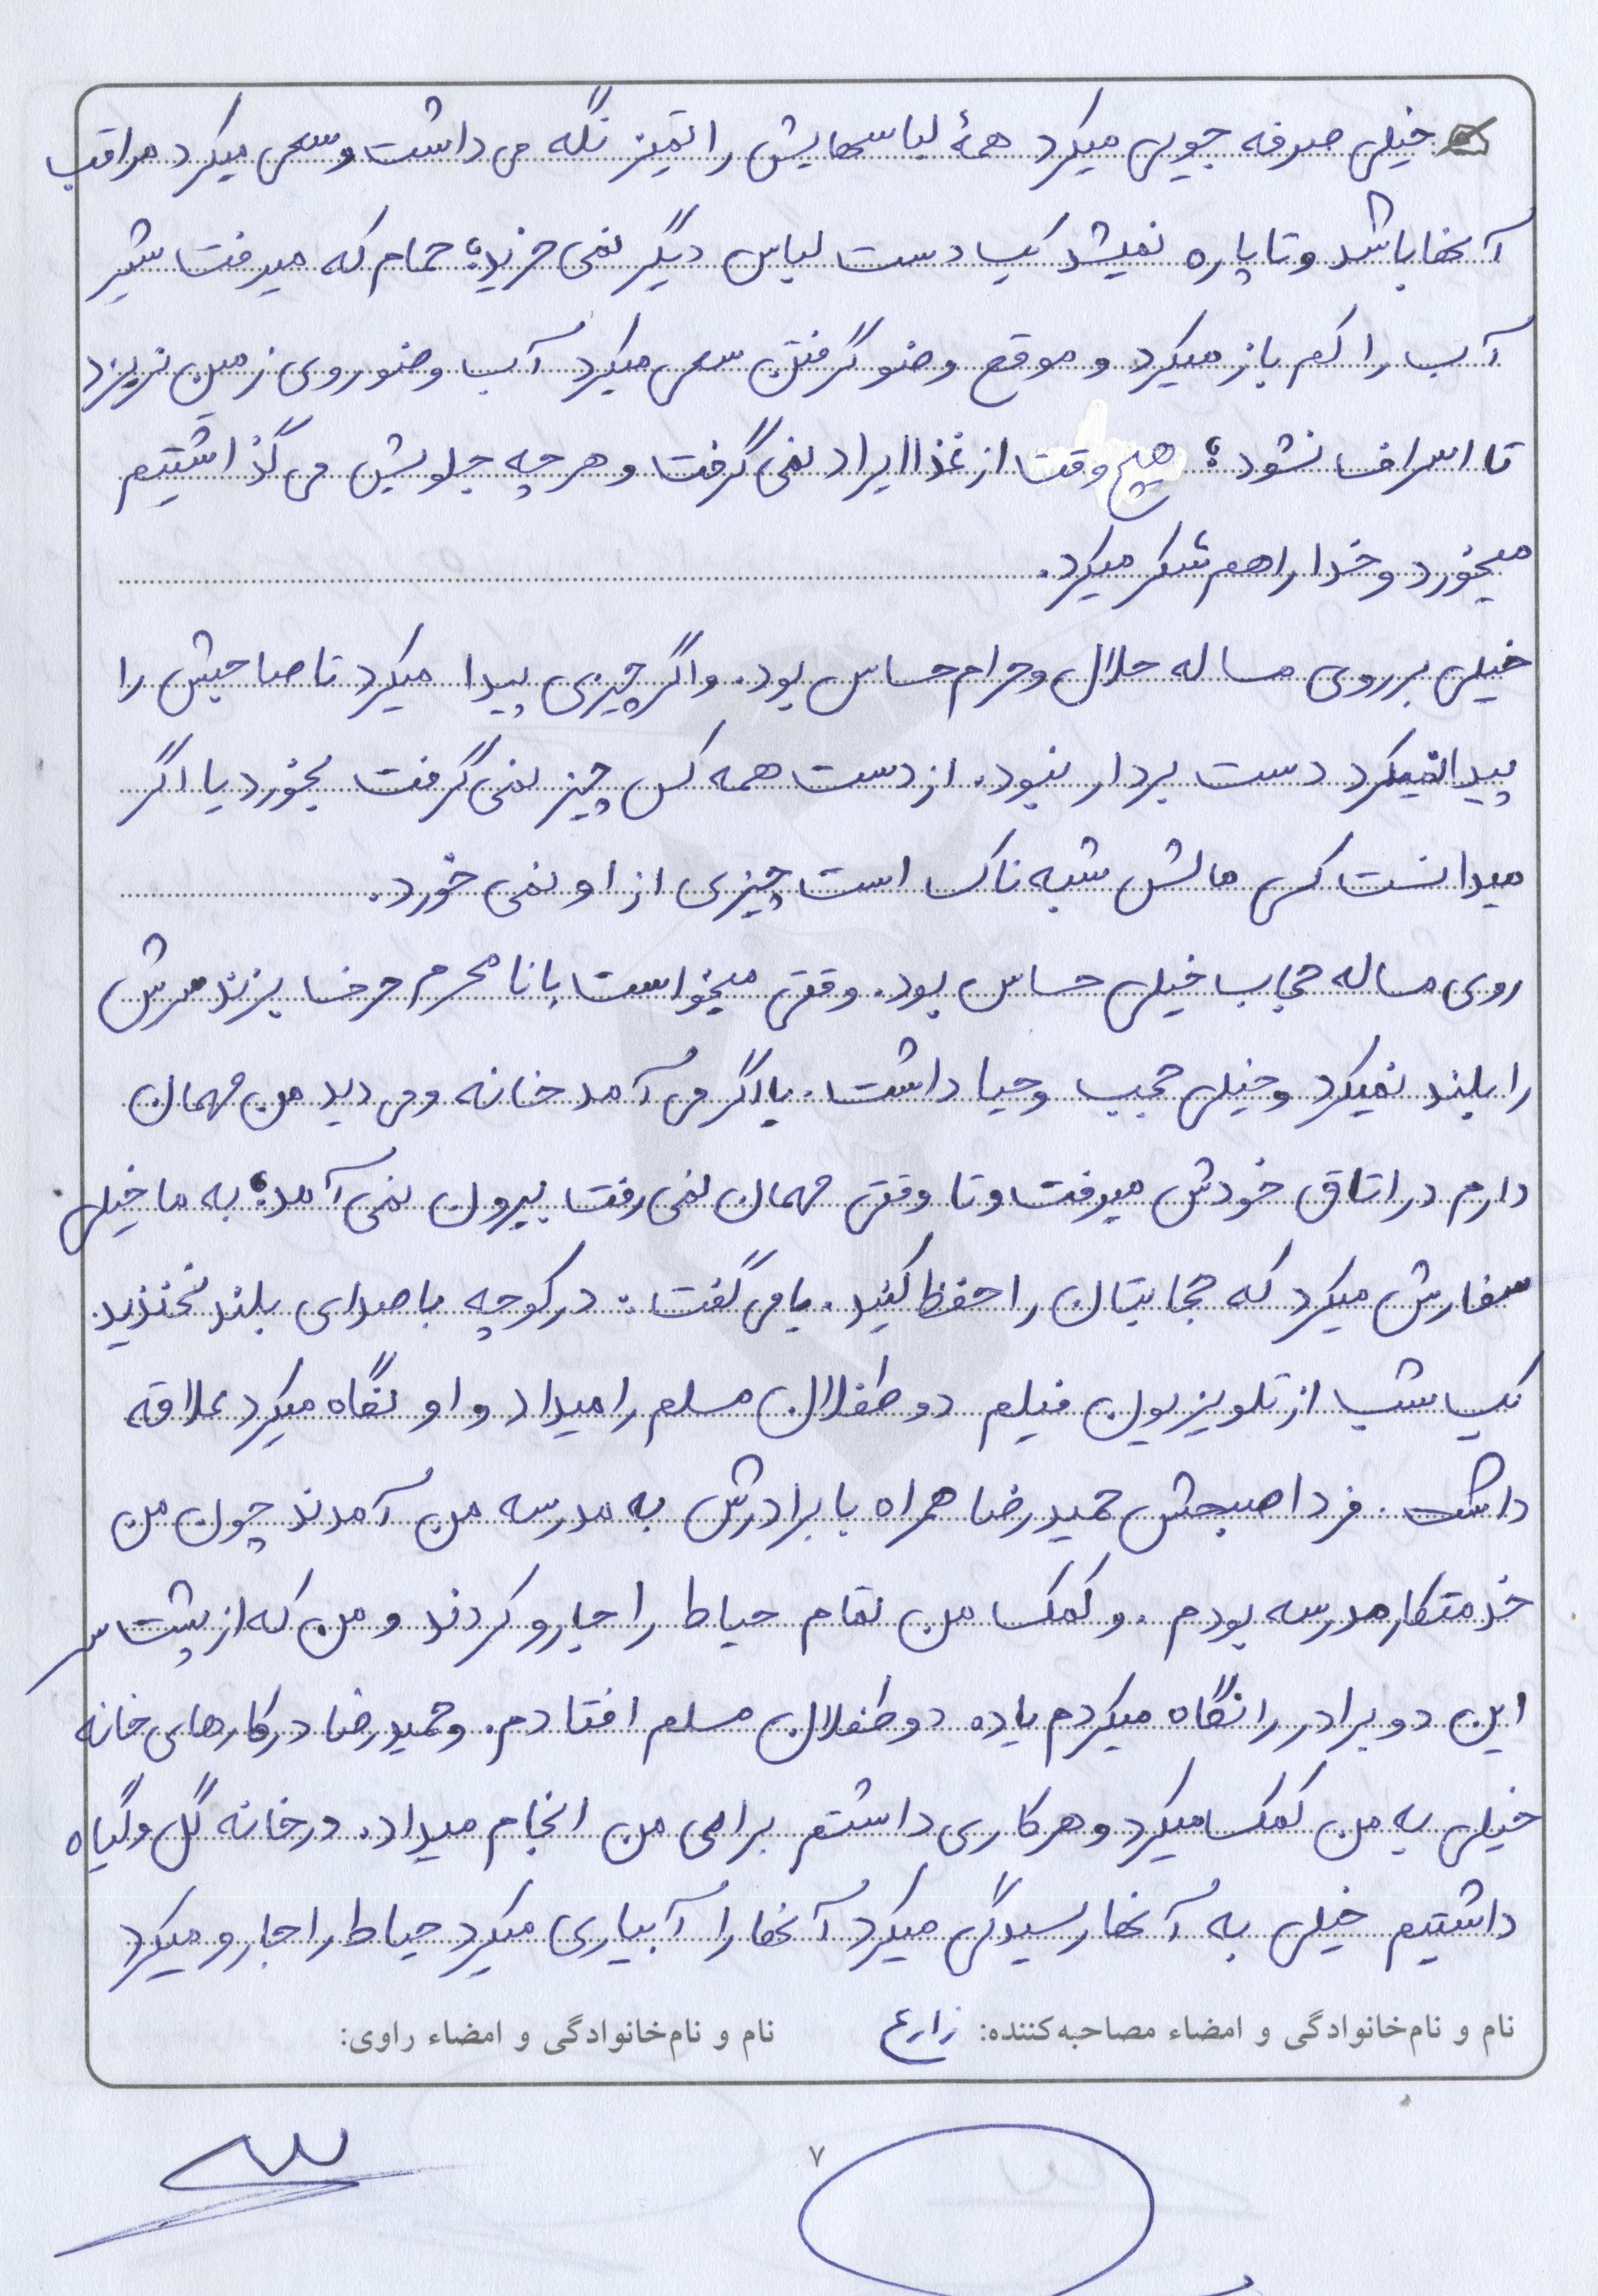 خیلی صرفه جویی میکرد همهٔ لباسهایش را تمیز نگه می داشت و سعی میکرد مراقب
آنها باشد و تا پاره نمیشد یک دست لباس دیگر نمی خرید؛ حمام که میرفت شیر
آب را کم باز میکرد و موقع وضو گرفتن سعی میکرد آب وضو روی زمین نریزد
تا اسراف نشود؛ هیچ وقت از غذا ایراد نمی گرفت و هر چه جلویش می گذاشتیم
میخورد و خدا را هم شکر میکرد.
خیلی بر روی مساله حلال و حرام حساس بود. و اگر چیزی پیدا میکرد تا صاحبش را
پیدا نمیکرد دست بردار نبود. از دست همه کس چیز نمی گرفت بخورد یا اگر
میدانست کسی مالش شبه ناک است چیزی از او نمی خورد.
روی مساله حجاب خیلی حساس بود. وقتی میخواست با نامحرم حرف بزند سرش
را بلند نمیکرد و خیلی حجب و حیا داشت. یا اگر می آمد خانه و می دید من مهمان
دارم در اتاق خودش میرفت و تا وقتی مهمان نمی رفت بیرون نمی آمد؛ به ما خیلی
سفارش میکرد که حجابتان را حفظ کنید. یا می گفت: در کوچه با صدای بلند نخندید.
یک شب از تلویزیون فیلم دو طفلان مسلم را میداد و او نگاه میکرد علاقه
داشت. فردا صبحش حمیدرضا همراه با برادرش به مدرسه من آمدند چون من
خدمتکار مدرسه بودم. و کمک من تمام حیاط را جارو کردند و من که از پشت سر
این دو برادر را نگاه میکردم یاده دو طفلان مسلم افتادم. و حمیدرضا در کارهای خانه
خیلی به من کمک میکرد و هر کاری داشتم برای من انجام میداد. در خانه گل و گیاه
داشتیم خیلی به آنها رسیدگی میکرد آنها را آبیاری میکرد حیاط را جارو میکرد
نام و نام‌خانوادگی و امضاء مصاحبه‌کننده: زارع نام و نام‌خانوادگی و امضاء راوی:
۷